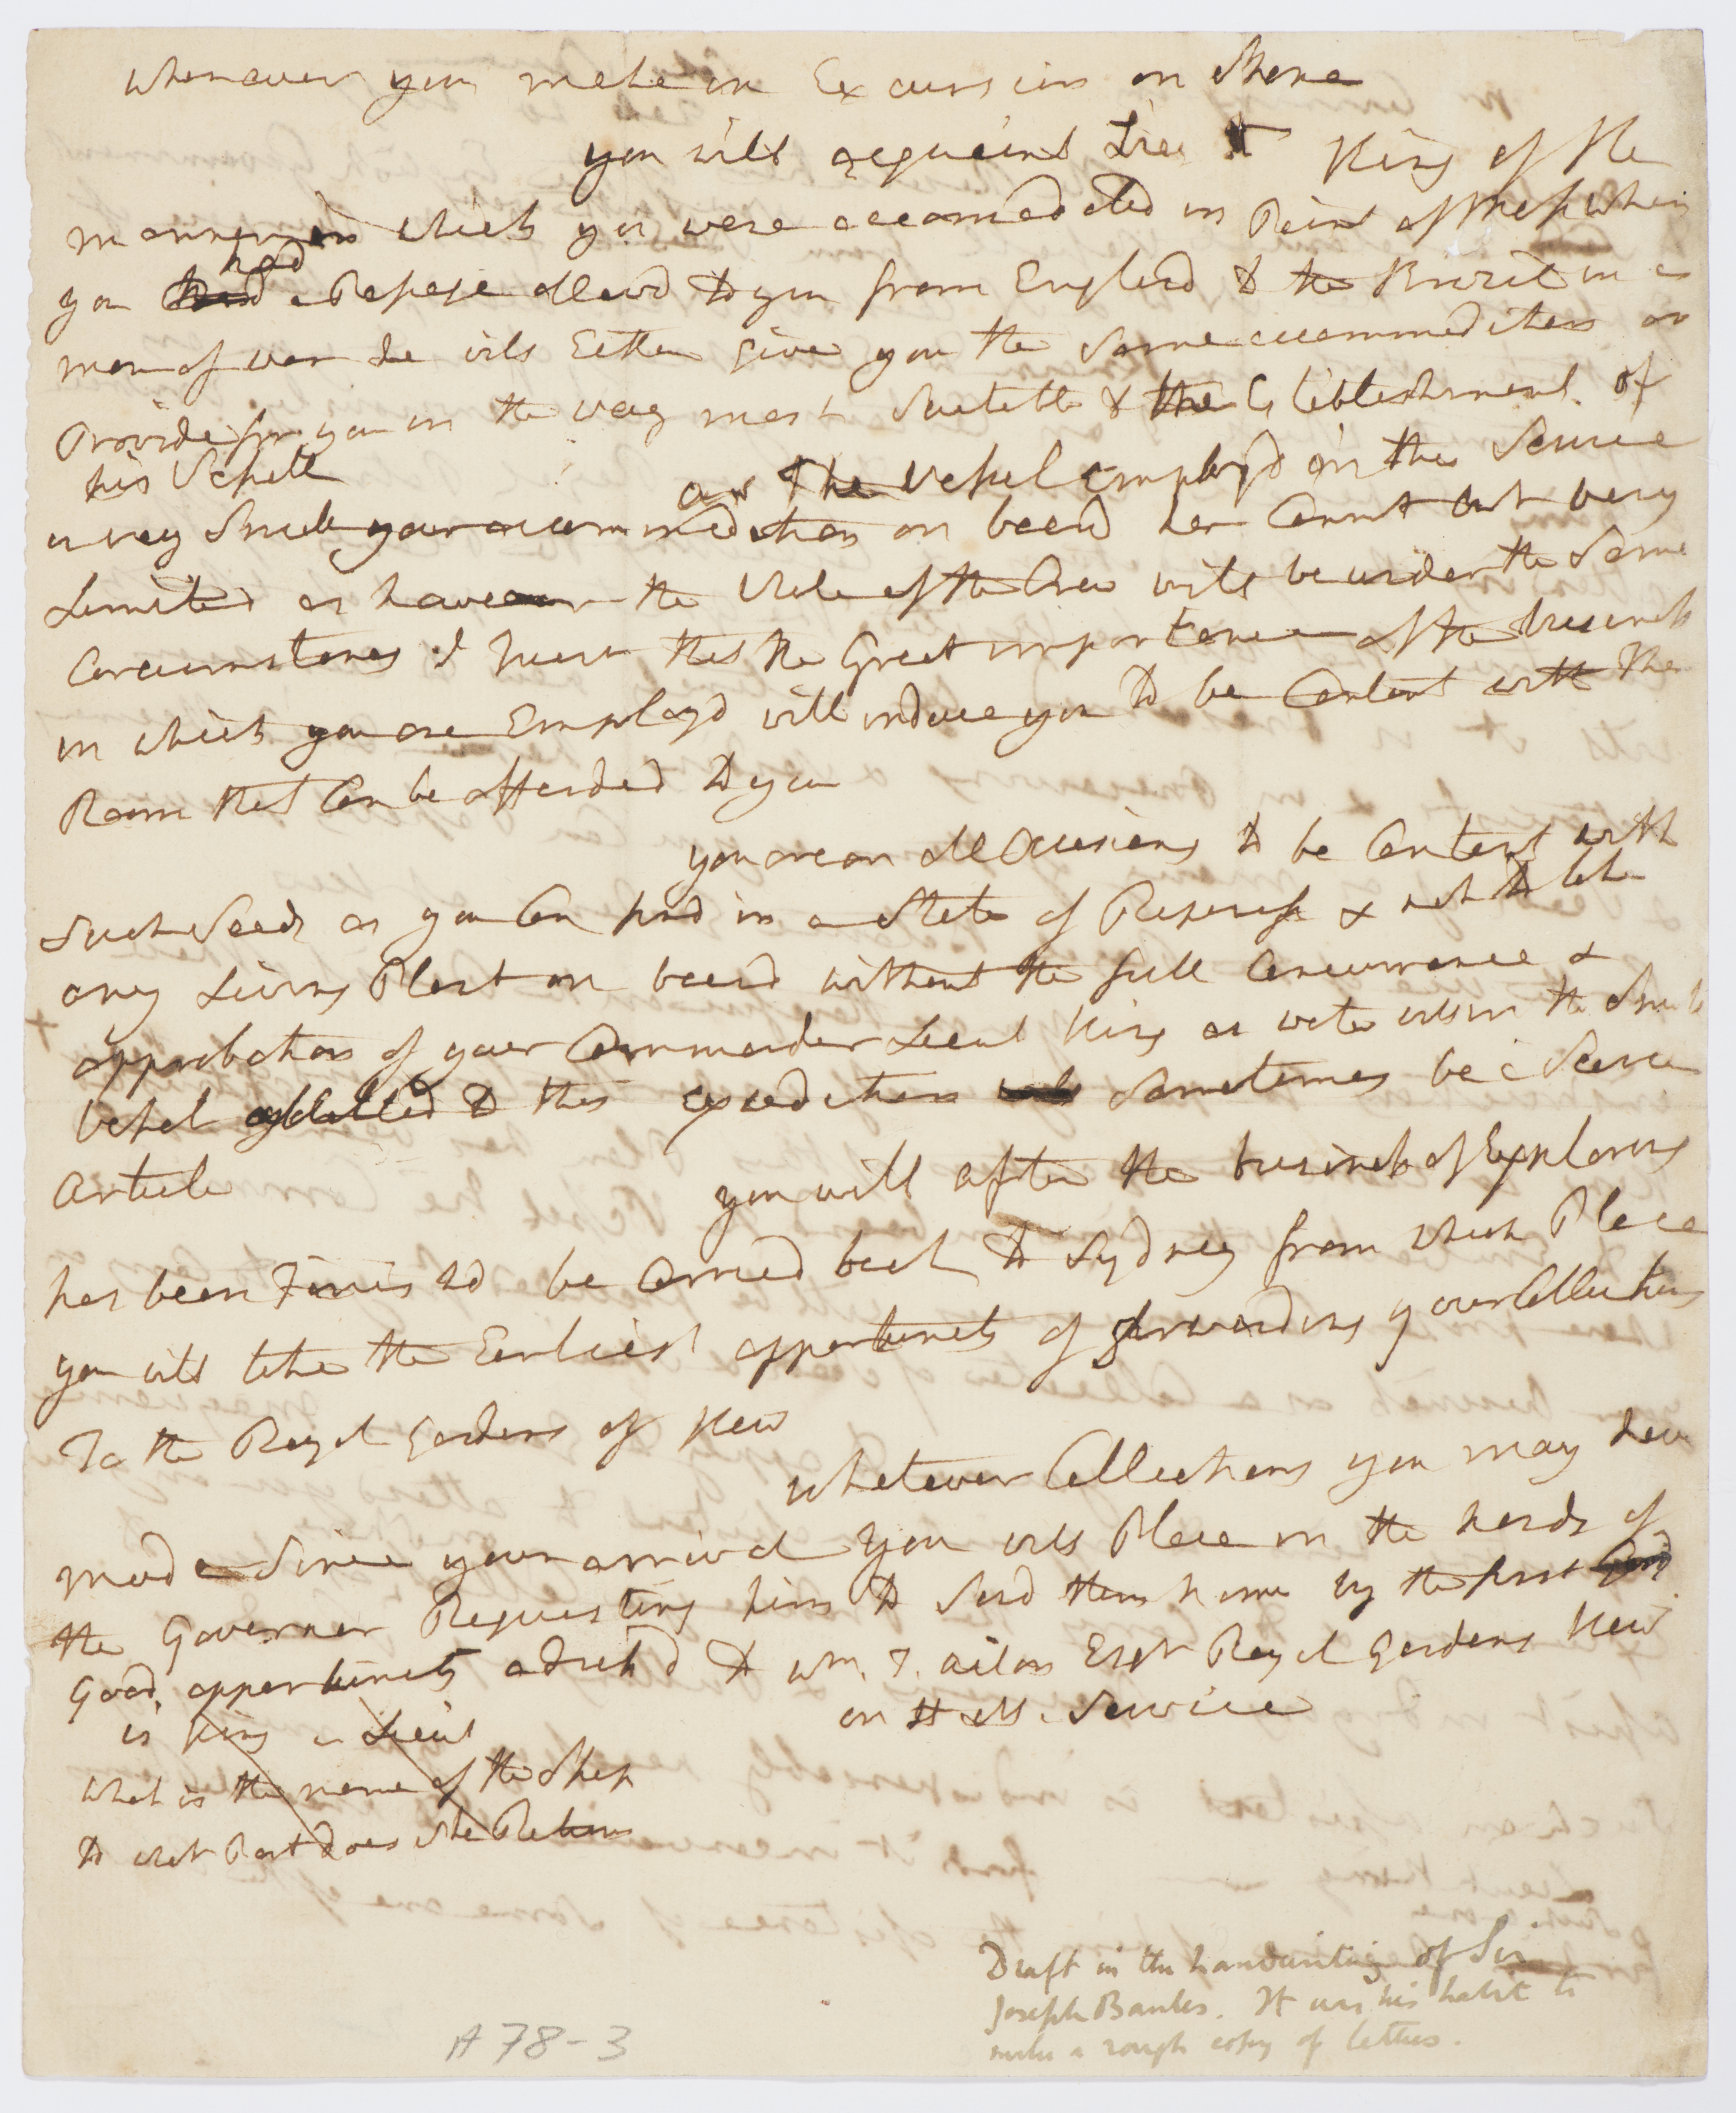 whenever you make an Excursion on Shore
you will acquaint Lieut King of the
manner in which you were accomodated in Point of Mess when
you had a Passage allowd to you from England to the Brazil in a
man of war he will Either give you the same accommodation or
Provide for you in the way most Suitable to the Establishment of
his Vessell
as The Vessel Employd in this Service
is very Small your accommodation on board her Cannot but be very
Limited as however the whole of the Crew will be under the Same
Circumstances I trust that the Great importance of the business
in which you are Employd will induce you to be Content with the
Room that Can be afforded to you
you are on all Occasions to be Content with
Such Seeds as you Can find in a State of Ripeness & not to take
any Living Plant on board without the full Concurrence &
approbation of your Commander Lieut King as water will in the Small
Vessel allotted to this expedition sometimes be a Scarce
Article
you will after the business of Exploring
has been Finishd be Carried back to Sydney from which Place
you will take the Earliest opportunity of forwarding your Collections
To the Royal Gardens of Kew
whatever Collections you may have
made Since your arrival you will Place in the hands of
the Governor Requesting him to Send them home by the first
Good opportunity adressd to Wm. T. Aiton Esqr Royal Gardens Kew
on H. M. Service
is King a Lieut
what is the name of the Ship
to what Port does She Return
Draft in the handwriting of Sir
Joseph Banks. It was his habit to
make a rough copy of letters.
A 78-3